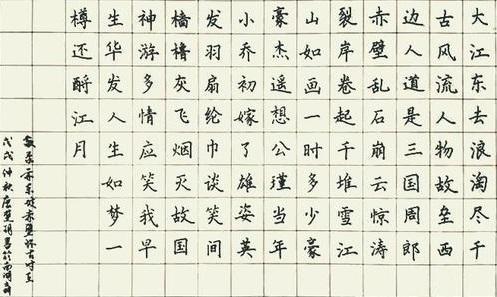 大江东去浪淘尽千
古风流人物故垒西
边人道是三国周郎
赤壁乱石崩云惊涛
裂岸卷起千堆雪江
山如画一时多少豪
豪杰遥想公瑾当年
小乔初嫁了雄姿英
发羽扇纶巾谈笑间
樯橹灰飞烟灭故国
神游多情应笑我早
生华发人生如梦一
樽还酹江月
东坡赤壁怀古时在
戊戌仲秋